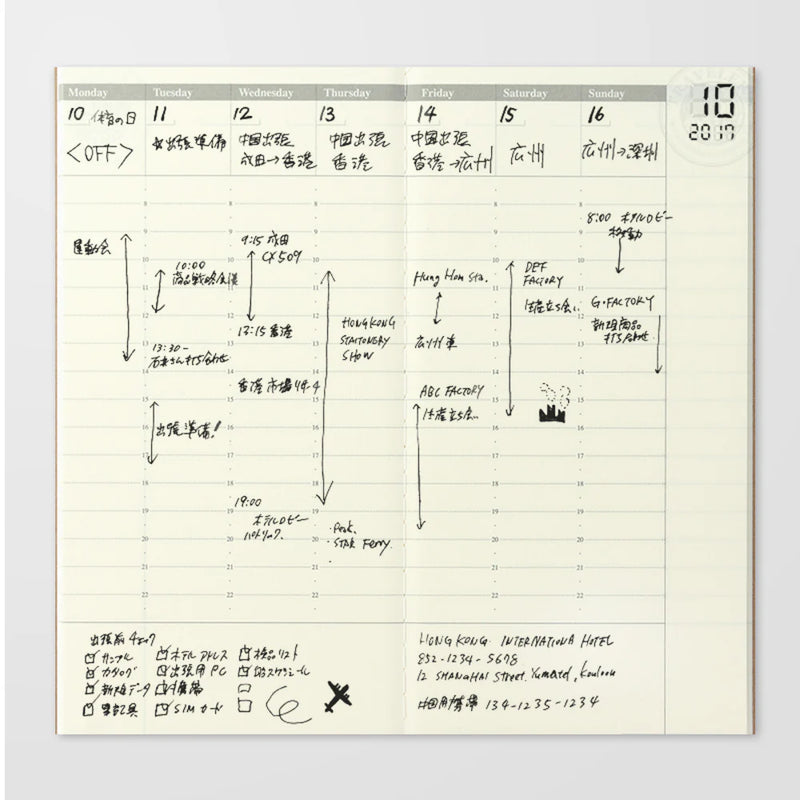 Monday
Tuesday
Wednesday
Thursday
Friday
Saturday
Sunday
10
2017
10 体育の日
11
12
13
14
15
16
<OFF>
出張準備
中国出張
成田→香港
中国出張
香港
中国出張
香港→広州
広州
広州→深圳
運動会
10:00
商品戦略会議
13:30-
打ち合わせ
出張準備!!
9:15 成田
CX509
13:15 香港
香港市場リサーチ
19:00
ホテルロビー
HONGKONG
STAITONERY
SHOW
・Peak.
・STAR Ferry.
Hung Hom Sta.
広州 車
ABC FACTORY
生産立ち会い
DEF
FACTORY
生産立ち会い
8:00 ホテルロビー
移動
G・FACTORY
新規商品
打ち合わせ
8
9
10
11
12
13
14
15
16
17
18
19
20
21
22
出張前チェック
サンプル
カタログ
新規データ
筆記具
ホテルアドレス
出張用PC
携帯
SIMカード
検品リスト
スケジュール
HONG KONG INTERNATIONA HOTEL
852-1234-5678
12 SHANGHAI Street. Yumatei, Kouloon
中国用携帯 134-1235-1234